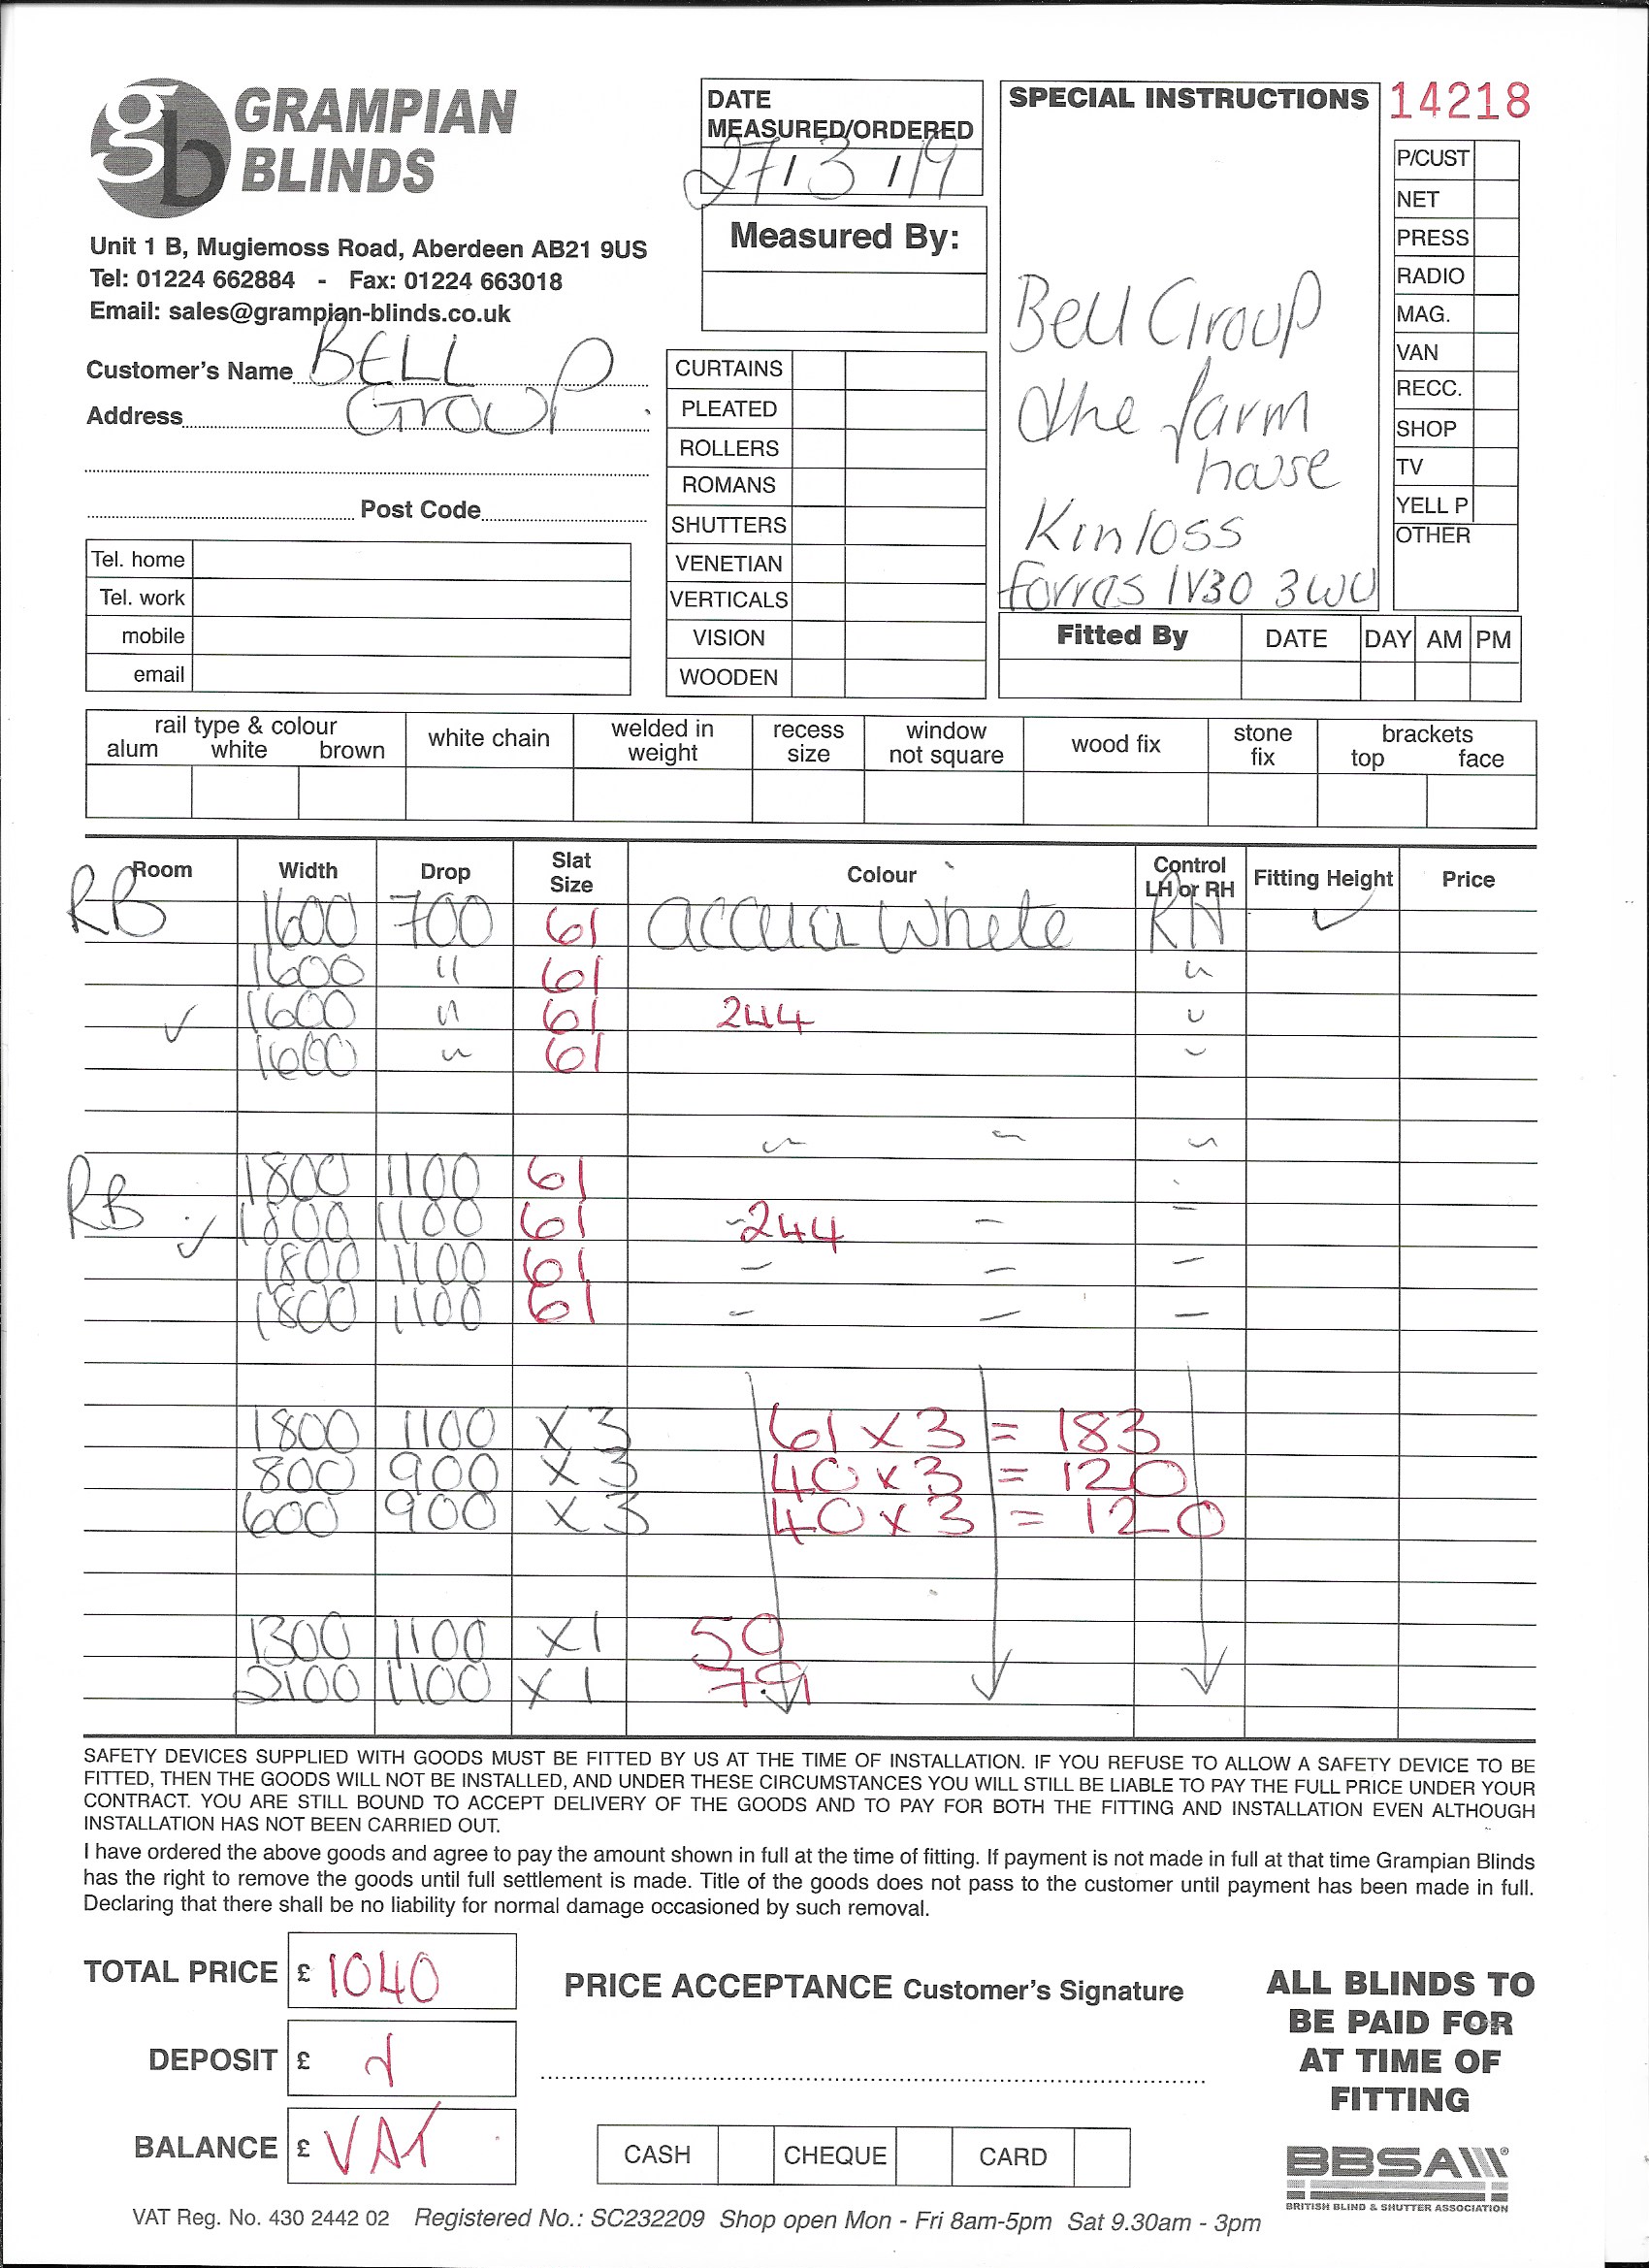 GRAMPIAN
BLINDS
Unit 1 B, Mugiemoss Road, Aberdeen AB21 9US
Tel: 01224 662884 - Fax: 01224 663018
Email: sales@grampian-blinds.co.uk
Customer's Name BELL
Address GROUP
Post Code
Tel. home
Tel. work
mobile
email
DATE
MEASURED/ORDERED
27/3/19
Measured By:
CURTAINS
PLEATED
ROLLERS
ROMANS
SHUTTERS
VENETIAN
VERTICALS
VISION
WOODEN
SPECIAL INSTRUCTIONS
Bell Group
The farm
house
Kinloss
Forres IV30 3WU
14218
P/CUST
NET
PRESS
RADIO
MAG.
VAN
RECC.
SHOP
TV
YELL P
OTHER
Fitted By DATE DAY AM PM
rail type & colour
alum white brown
white chain
welded in
weight
recess
size
window
not square
wood fix
stone
fix
brackets
top face
Room Width Drop Slat Size Colour Control LH or RH Fitting Height Price
RB 1600 700 61 White RH ✓
1600 " 61 "
✓ 1600 " 61 244 "
1600 " 61 "
" " "
RB 1800 1100 61
✓ 1800 1100 61 - 244 - -
1800 1100 61 - - -
1800 1100 61 - - -
1800 1100 x 3 61 x 3 = 183
800 900 x 3 40 x 3 = 120
600 900 x 3 40 x 3 = 120
1300 1100 x 1 50
2100 1100 x 1 79
SAFETY DEVICES SUPPLIED WITH GOODS MUST BE FITTED BY US AT THE TIME OF INSTALLATION. IF YOU REFUSE TO ALLOW A SAFETY DEVICE TO BE
FITTED, THEN THE GOODS WILL NOT BE INSTALLED, AND UNDER THESE CIRCUMSTANCES YOU WILL STILL BE LIABLE TO PAY THE FULL PRICE UNDER YOUR
CONTRACT. YOU ARE STILL BOUND TO ACCEPT DELIVERY OF THE GOODS AND TO PAY FOR BOTH THE FITTING AND INSTALLATION EVEN ALTHOUGH
INSTALLATION HAS NOT BEEN CARRIED OUT.
I have ordered the above goods and agree to pay the amount shown in full at the time of fitting. If payment is not made in full at that time Grampian Blinds
has the right to remove the goods until full settlement is made. Title of the goods does not pass to the customer until payment has been made in full.
Declaring that there shall be no liability for normal damage occasioned by such removal.
TOTAL PRICE £ 1040
DEPOSIT £
BALANCE £ VAT
PRICE ACCEPTANCE Customer's Signature
CASH CHEQUE CARD
ALL BLINDS TO
BE PAID FOR
AT TIME OF
FITTING
BBSA
BRITISH BLIND & SHUTTER ASSOCIATION
VAT Reg. No. 430 2442 02 Registered No.: SC232209 Shop open Mon - Fri 8am-5pm Sat 9.30am - 3pm